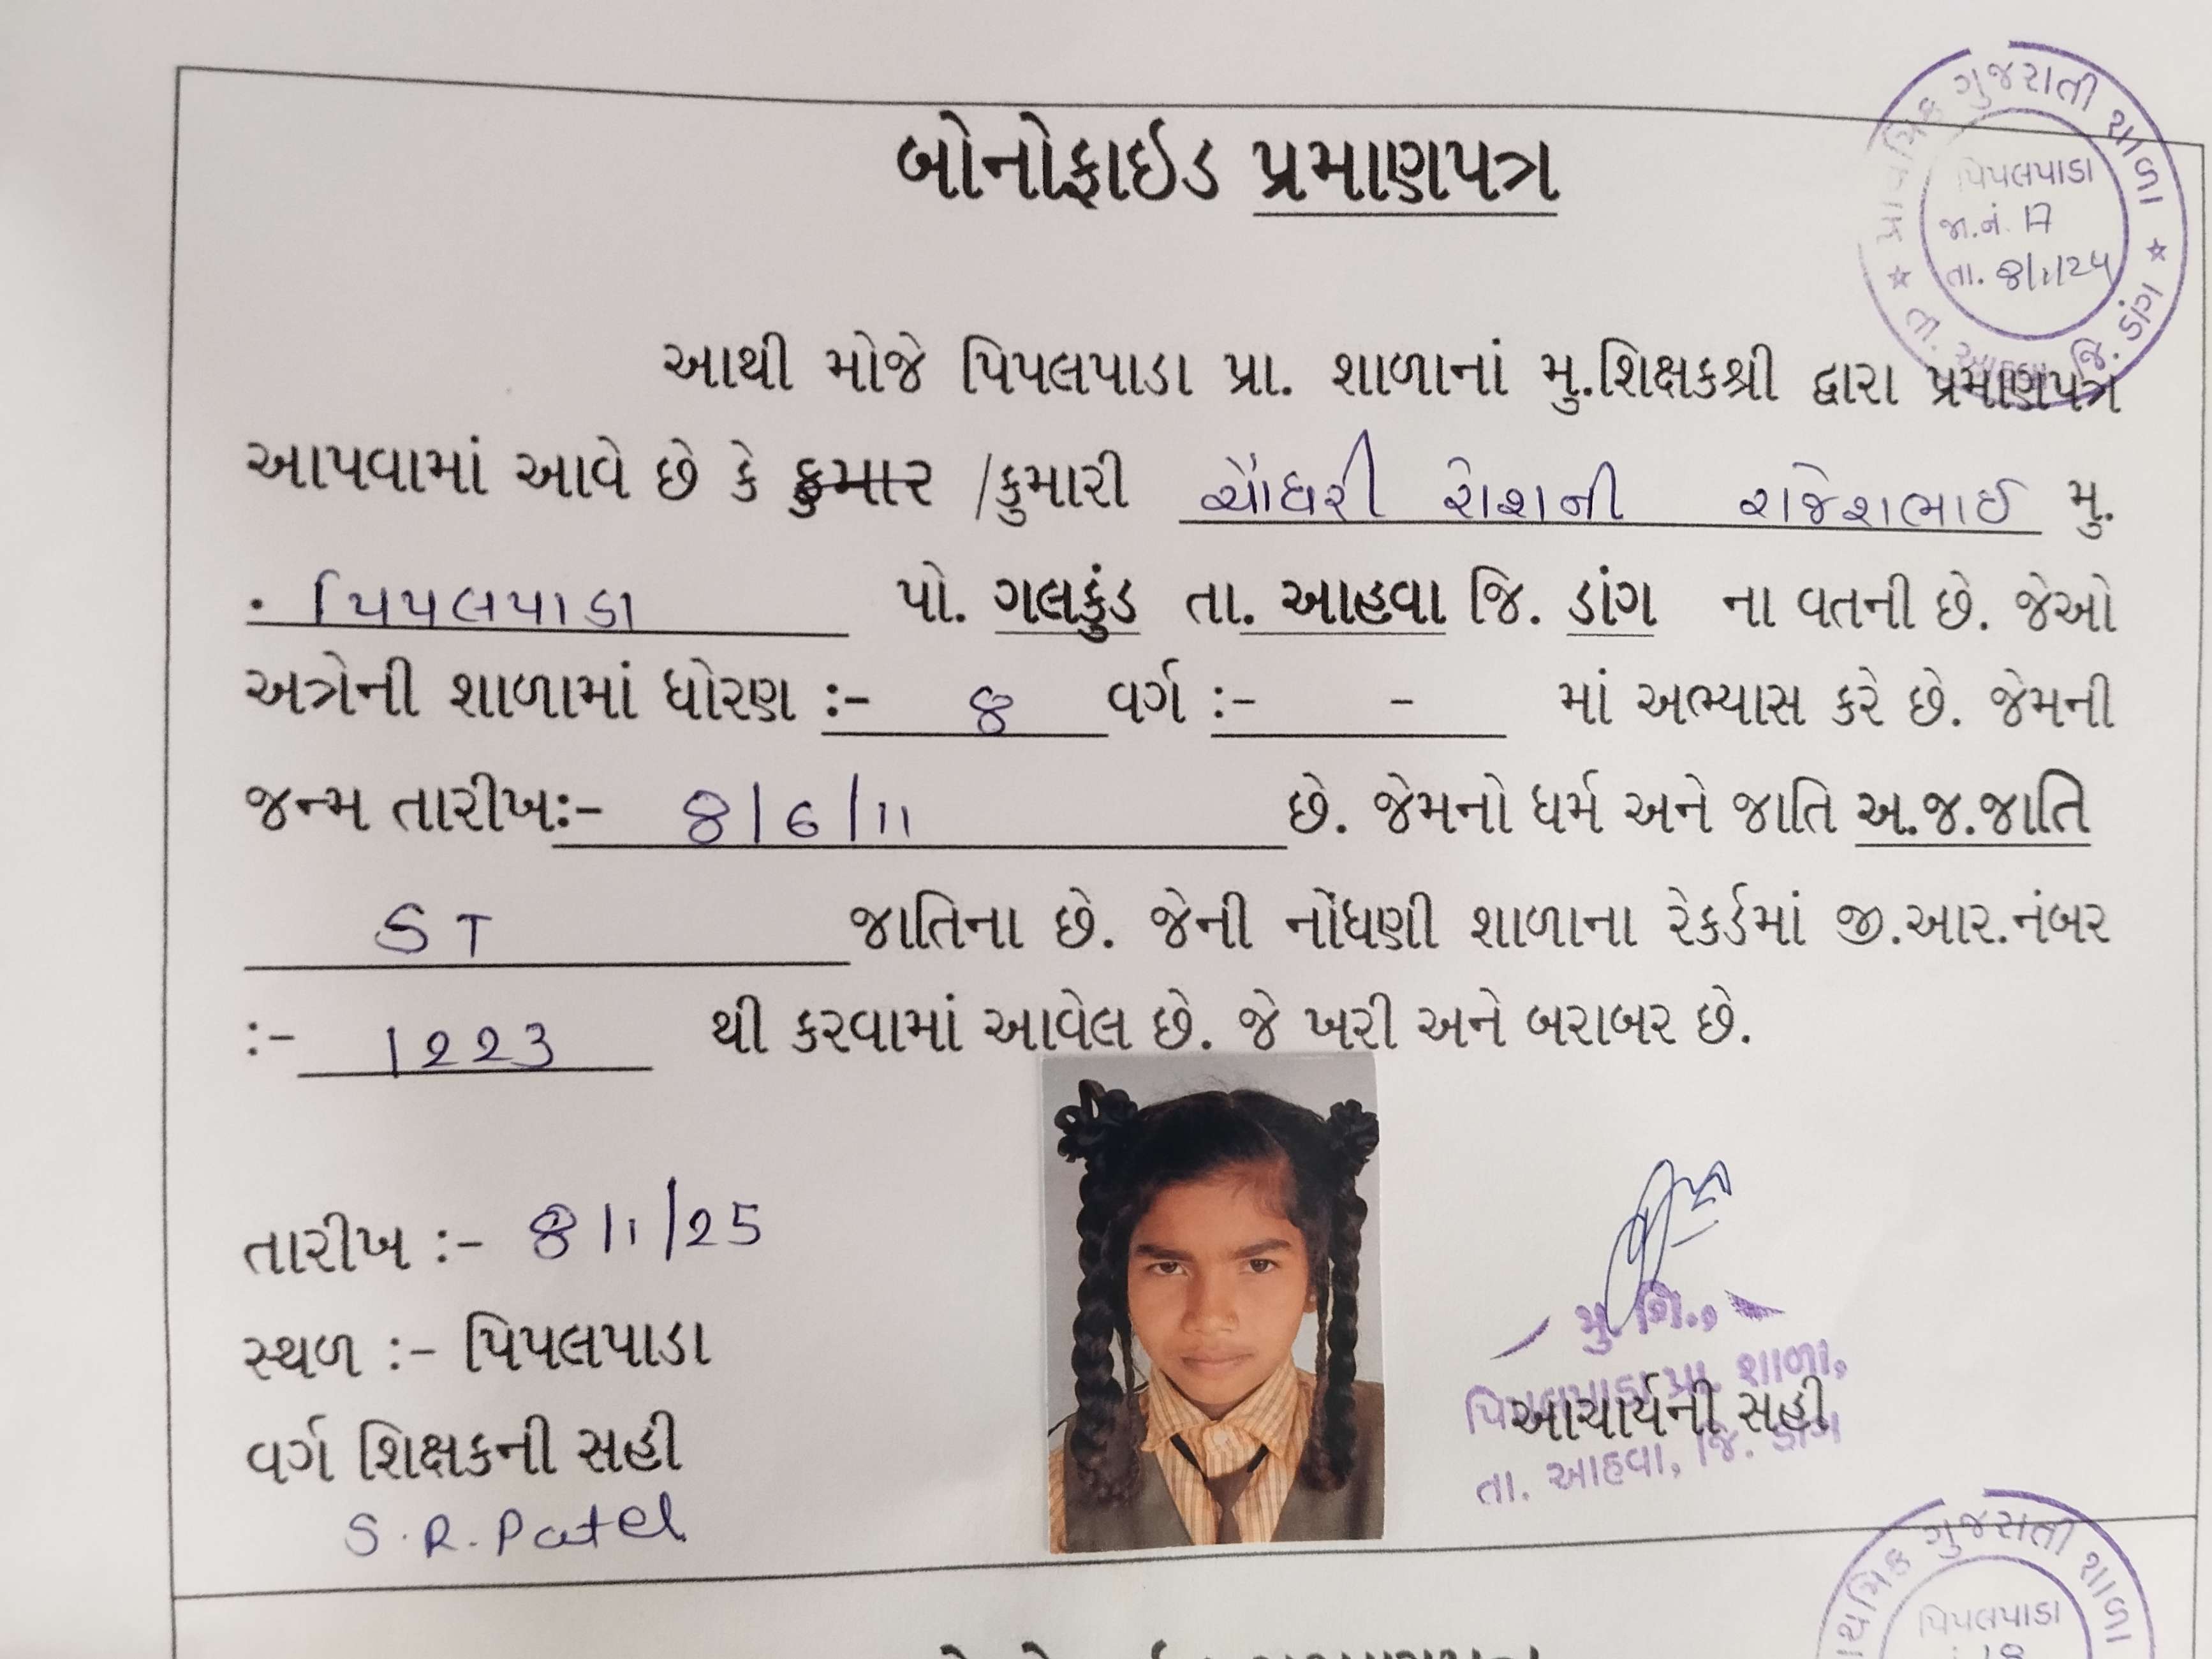 બોનોફાઈડ પ્રમાણપત્ર
પ્રાથમિક ગુજરાતી શાળા
પિપલપાડા
જા.નં. 17
તા. 8/1/25
તા. આહવા જિ. ડાંગ
આથી મોજે પિપલપાડા પ્રા. શાળાનાં મુ.શિક્ષકશ્રી દ્વારા પ્રમાણપત્ર
આપવામાં આવે છે કે કુમાર /કુમારી ચૌધરી રોશની રાજેશભાઈ મુ.
. પિપલપાડા પો. ગલકુંડ તા. આહવા જિ. ડાંગ ના વતની છે. જેઓ
અત્રેની શાળામાં ધોરણ :- 8 વર્ગ :- - માં અભ્યાસ કરે છે. જેમની
જન્મ તારીખઃ- 8/6/11 છે. જેમનો ધર્મ અને જાતિ અ.જ.જાતિ
ST જાતિના છે. જેની નોંધણી શાળાના રેકર્ડમાં જી.આર.નંબર
:- 1223 થી કરવામાં આવેલ છે. જે ખરી અને બરાબર છે.
તારીખ :- 8/1/25
સ્થળ :- પિપલપાડા
વર્ગ શિક્ષકની સહી
S.R.Patel
મુ. શિ.,
પિપલપાડા પ્રા. શાળા,
આચાર્યની સહી
તા. આહવા, જિ. ડાંગ
ગુજરાતી શાળા
પિપલપાડા